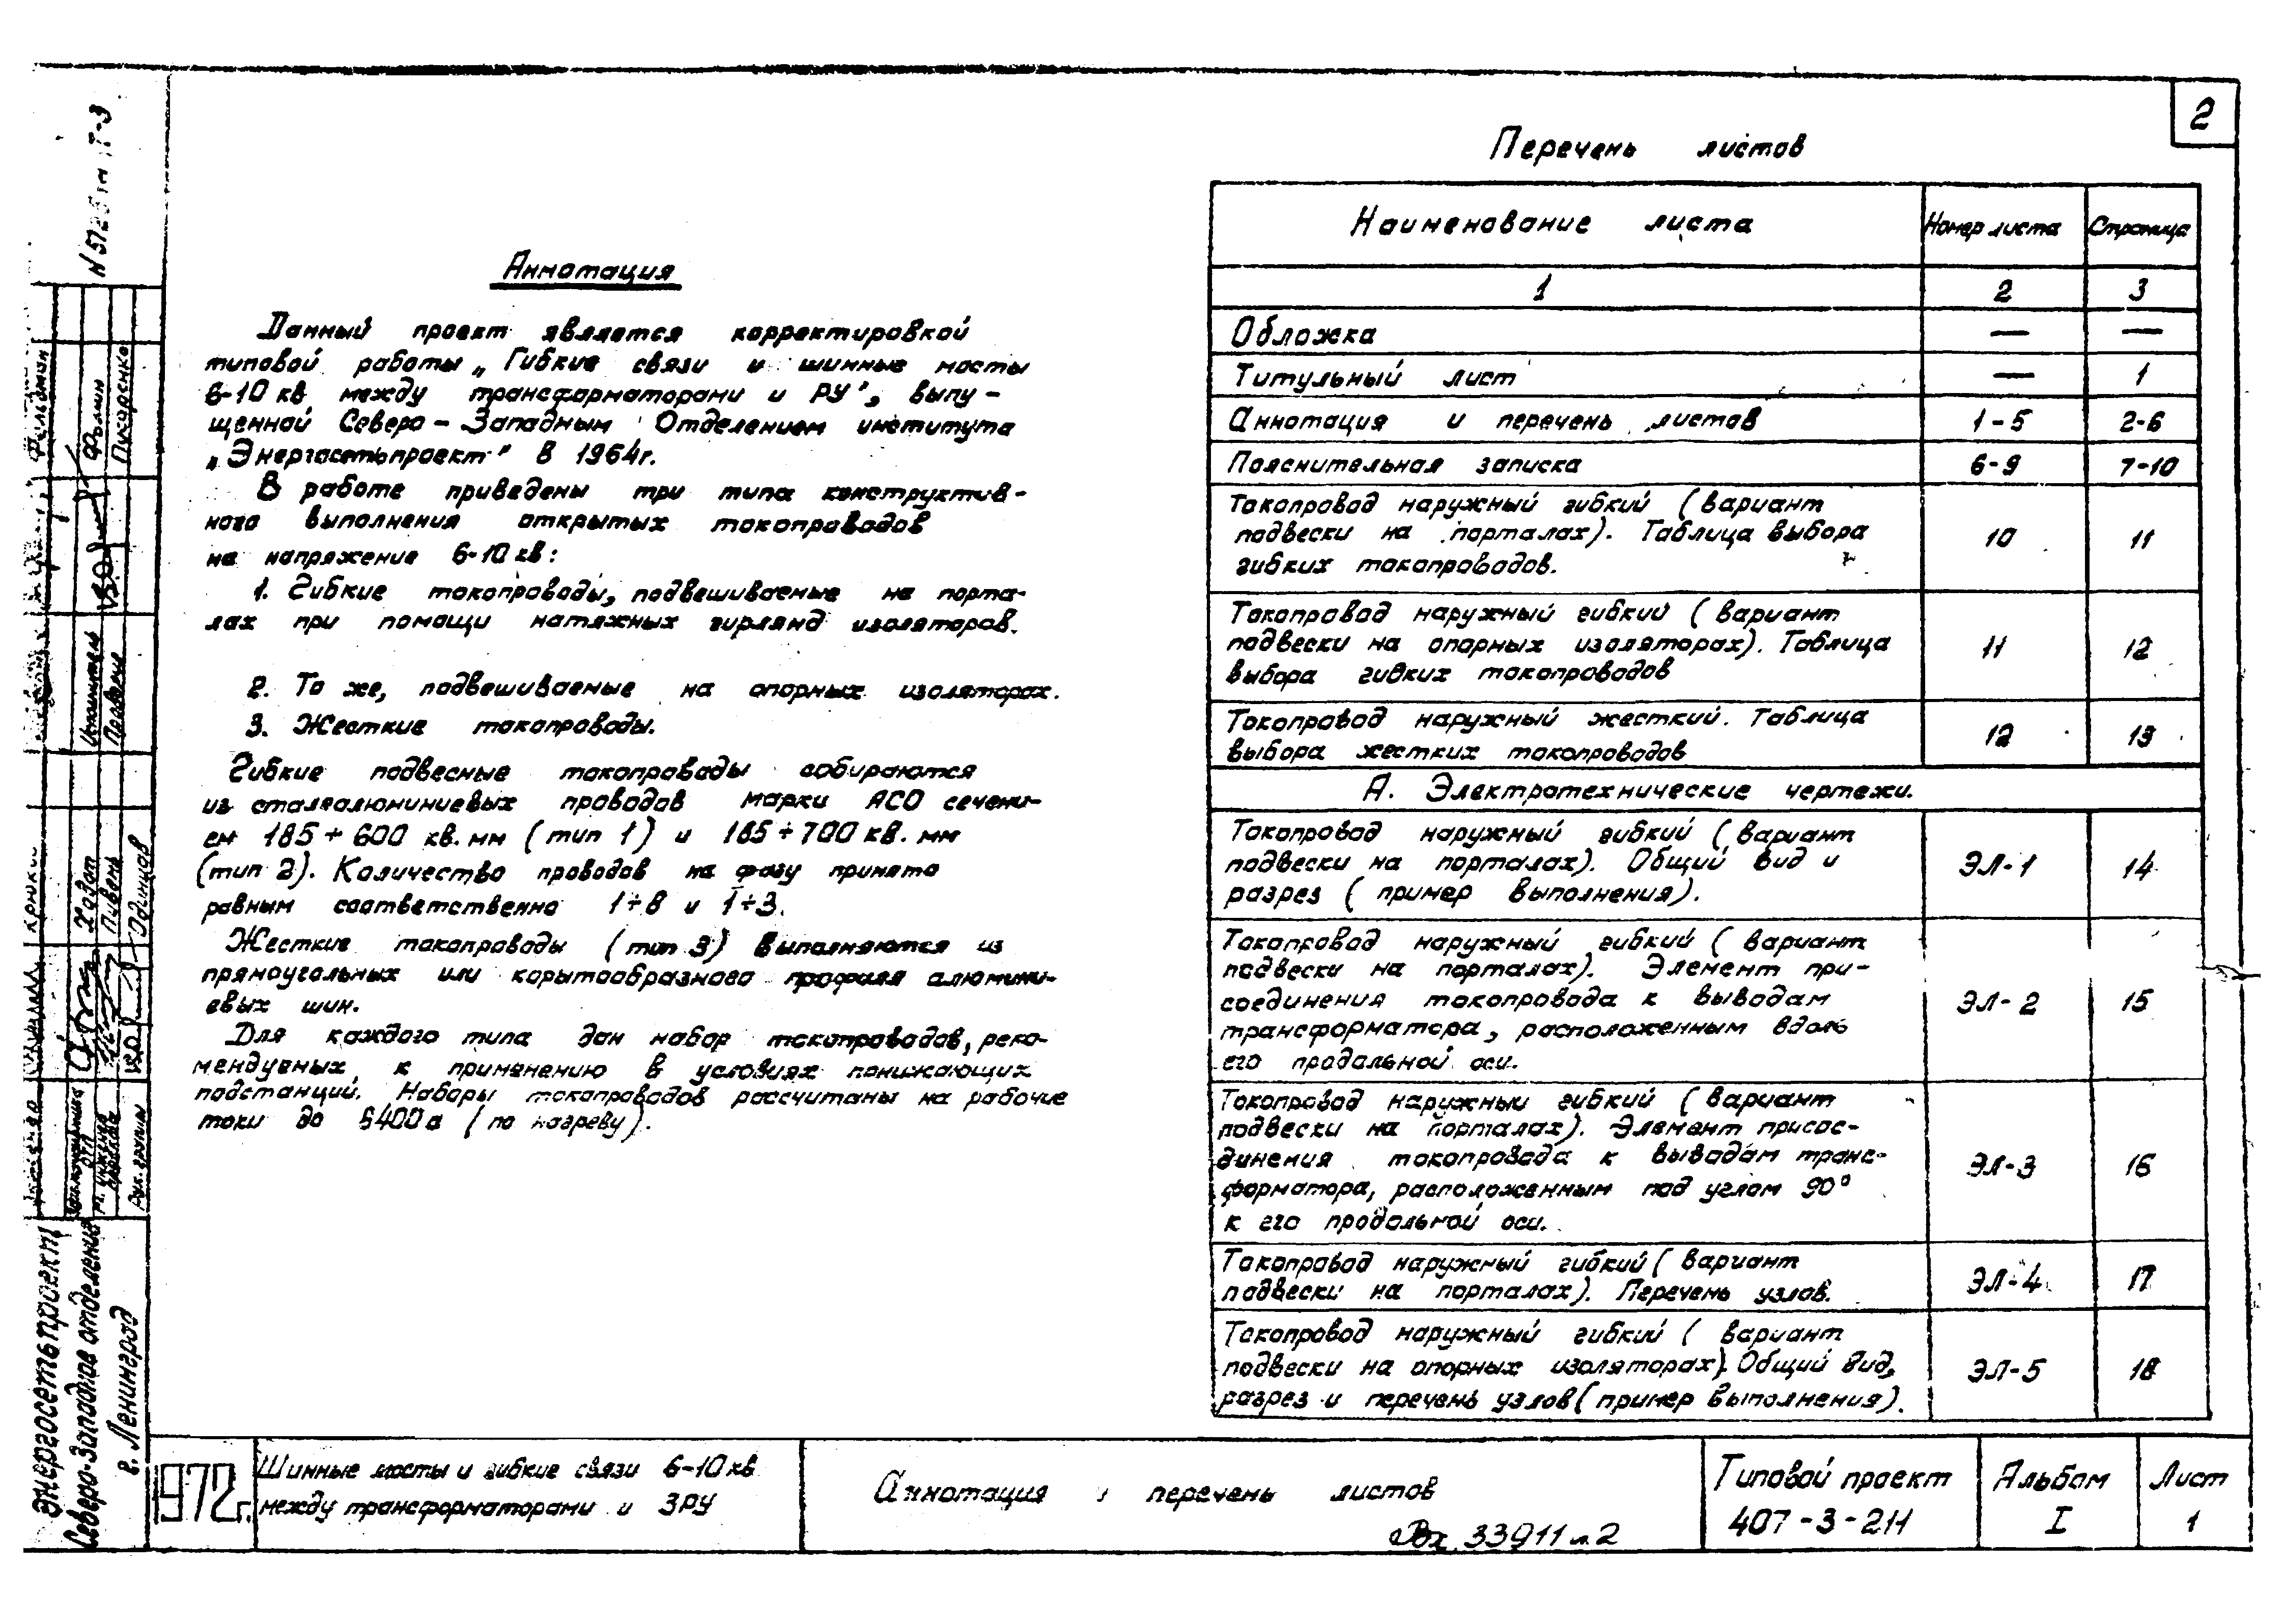 2
Аннотация
Данный проект является корректировкой
типовой работы „Гибкие связи и шинные мосты
6-10 кв между трансформаторами и РУ", выпу-
щенной Северо-Западным Отделением института
„Энергосетьпроект" в 1964г.
В работе приведены три типа конструктив-
ного выполнения открытых токопроводов
на напряжение 6-10 кв:
1. Гибкие токопроводы, подвешиваемые на порта-
лах при помощи натяжных гирлянд изоляторов.
2. То же, подвешиваемые на опорных изоляторах.
3. Жесткие токопроводы.
Гибкие подвесные токопроводы собираются
из сталеалюминиевых проводов марки АСО сечени-
ем 185÷600 кв. мм (тип 1) и 185÷700 кв. мм
(тип 2). Количество проводов на фазу принято
равным соответственно 1÷8 и 1÷3.
Жесткие токопроводы (тип 3) выполняются из
прямоугольных или корытообразного профиля алюмини-
евых шин.
Для каждого типа дан набор токопроводов, реко-
мендуемых к применению в условиях понижающих
подстанций. Наборы токопроводов рассчитаны на рабочие
токи до 6400а (по нагреву).
Перечень листов
Наименование листа Номер листа Страница
1 2 3
Обложка — —
Титульный лист — 1
Аннотация и перечень листов 1-5 2-6
Пояснительная записка 6-9 7-10
Токопровод наружный гибкий (вариант
подвески на порталах). Таблица выбора 10 11
гибких токопроводов.
Токопровод наружный гибкий (вариант
подвески на опорных изоляторах). Таблица 11 12
выбора гибких токопроводов
Токопровод наружный жесткий. Таблица
выбора жестких токопроводов 12 13
А. Электротехнические чертежи.
Токопровод наружный гибкий (вариант
подвески на порталах). Общий вид и ЭЛ-1 14
разрез (пример выполнения).
Токопровод наружный гибкий (вариант
подвески на порталах). Элемент при-
соединения токопровода к выводам ЭЛ-2 15
трансформатора, расположенным вдоль
его продольной оси.
Токопровод наружный гибкий (вариант
подвески на порталах). Элемент присое-
динения токопровода к выводам транс- ЭЛ-3 16
форматора, расположенным под углом 90°
к его продольной оси.
Токопровод наружный гибкий (вариант
подвески на порталах). Перечень узлов. ЭЛ-4 17
Токопровод наружный гибкий (вариант
подвески на опорных изоляторах). Общий вид, ЭЛ-5 18
разрез и перечень узлов (пример выполнения).
Фельдман
Фомин
Пукаренко
Исполнитель
Ходот
Пивень
Одинцов
Рук. группы
Энергосетьпроект
Северо-Западное отделение
г. Ленинград
1972г.
Шинные мосты и гибкие связи 6-10кв
между трансформаторами и ЗРУ
Аннотация и перечень листов
Вх 33911 л.2
Типовой проект
407-3-211
Альбом
I
Лист
1